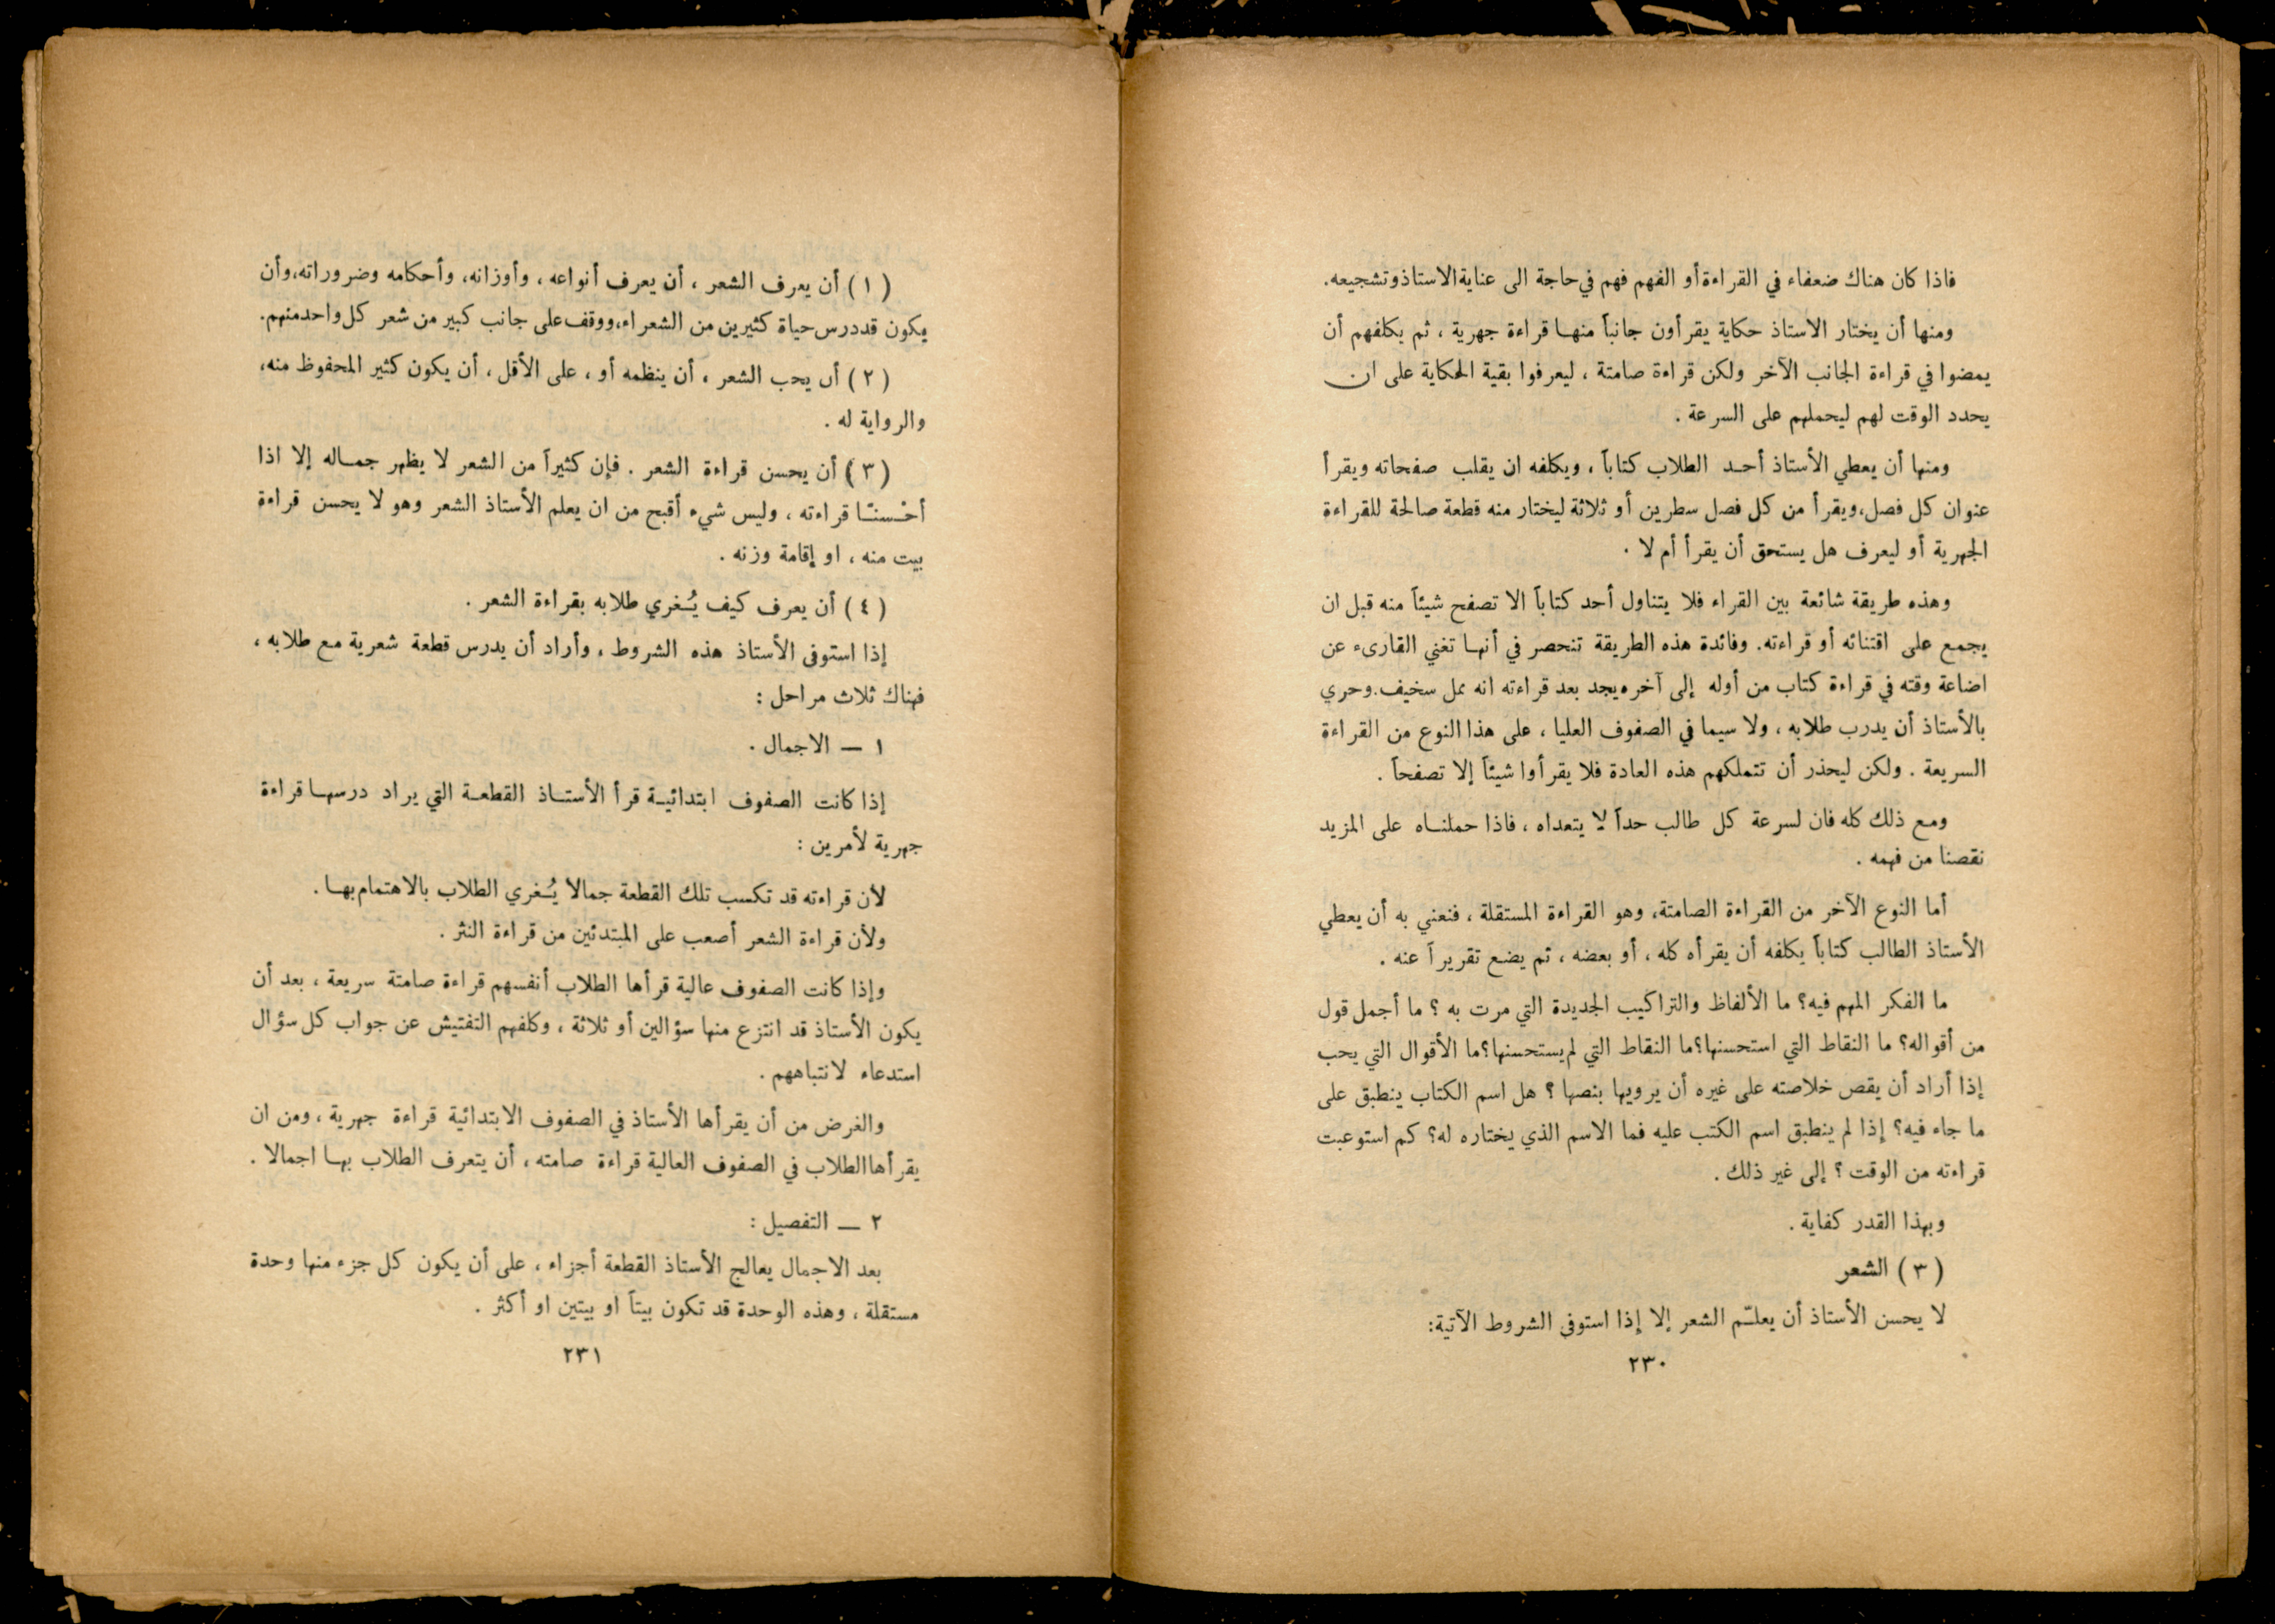 فاذا كان هناك ضعفاء في القراءة أو الفهم فهم في حاجة الى عناية الاستاذ وتشجيعه.
ومنها أن يختار الاستاذ حكاية يقرأون جانباً منها قراءة جهرية ، ثم يكلفهم أن
يمضوا في قراءة الجانب الآخر ولكن قراءة صامتة ، ليعرفوا بقية الحكاية على ان
يحدد الوقت لهم ليحملهم على السرعة .
ومنها أن يعطي الأستاذ أحد الطلاب كتاباً ، ويكلفه ان يقلب صفحاته ويقرأ
عنوان كل فصل، ويقرأ من كل فصل سطرين أو ثلاثة ليختار منه قطعة صالحة للقراءة
الجهرية أو ليعرف هل يستحق أن يقرأ أم لا .
وهذه طريقة شائعة بين القراء فلا يتناول أحد كتاباً الا تصفح شيئاً منه قبل ان
يجمع على اقتنائه أو قراءته. وفائدة هذه الطريقة تنحصر في أنها تغني القارىء عن
اضاعة وقته في قراءة كتاب من أوله إلى آخره يجد بعد قراءته انه ممل سخيف. وحري
بالأستاذ أن يدرب طلابه ، ولا سيما في الصفوف العليا ، على هذا النوع من القراءة
السريعة . ولكن ليحذر أن تتملكهم هذه العادة فلا يقرأوا شيئاً إلا تصفحاً .
ومع ذلك كله فان لسرعة كل طالب حداً لا يتعداه ، فاذا حملناه على المزيد
نقصنا من فهمه .
أما النوع الآخر من القراءة الصامتة، وهو القراءة المستقلة ، فنعني به أن يعطي
الأستاذ الطالب كتاباً يكلفه أن يقرأه كله ، أو بعضه ، ثم يضع تقريراً عنه .
ما الفكر المهم فيه؟ ما الألفاظ والتراكيب الجديدة التي مرت به ؟ ما أجمل قول
من أقواله؟ ما النقاط التي استحسنها؟ ما النقاط التي لم يستحسنها؟ ما الأقوال التي يحب
إذا أراد أن يقص خلاصته على غيره أن يرويها بنصها ؟ هل اسم الكتاب ينطبق على
ما جاء فيه؟ إذا لم ينطبق اسم الكتب عليه فما الاسم الذي يختاره له؟ كم استوعبت
قراءته من الوقت ؟ إلى غير ذلك .
وبهذا القدر كفاية .
( ٣ ) الشعر
لا يحسن الأستاذ أن يعلّم الشعر إلا إذا استوفى الشروط الآتية:
٢٣٠
( ١ ) أن يعرف الشعر ، أن يعرف أنواعه ، وأوزانه، وأحكامه وضروراته، وأن
يكون قد درس حياة كثيرين من الشعراء، ووقف على جانب كبير من شعر كل واحد منهم.
( ٢ ) أن يحب الشعر ، أن ينظمه أو ، على الأقل ، أن يكون كثير المحفوظ منه،
والرواية له .
( ٣ ) أن يحسن قراءة الشعر . فإن كثيراً من الشعر لا يظهر جماله إلا اذا
أحْسنّا قراءته ، وليس شيء أقبح من ان يعلم الأستاذ الشعر وهو لا يحسن قراءة
بيت منه ، او إقامة وزنه .
( ٤ ) أن يعرف كيف يُغري طلابه بقراءة الشعر .
إذا استوفى الأستاذ هذه الشروط ، وأراد أن يدرس قطعة شعرية مع طلابه ،
فهناك ثلاث مراحل :
١ — الاجمال .
إذا كانت الصفوف ابتدائية قرأ الأستاذ القطعة التي يراد درسها قراءة
جهرية لأمرين :
لأن قراءته قد تكسب تلك القطعة جمالا يُغري الطلاب بالاهتمام بها .
ولأن قراءة الشعر أصعب على المبتدئين من قراءة النثر .
وإذا كانت الصفوف عالية قرأها الطلاب أنفسهم قراءة صامتة سريعة ، بعد أن
يكون الأستاذ قد انتزع منها سؤالين أو ثلاثة ، وكلفهم التفتيش عن جواب كل سؤال
استدعاء لانتباههم .
والغرض من أن يقرأها الأستاذ في الصفوف الابتدائية قراءة جهرية ، ومن ان
يقرأها الطلاب في الصفوف العالية قراءة صامته ، أن يتعرف الطلاب بها اجمالا .
٢ — التفصيل :
بعد الاجمال يعالج الأستاذ القطعة أجزاء ، على أن يكون كل جزء منها وحدة
مستقلة ، وهذه الوحدة قد تكون بيتاً او بيتين او أكثر .
٢٣١